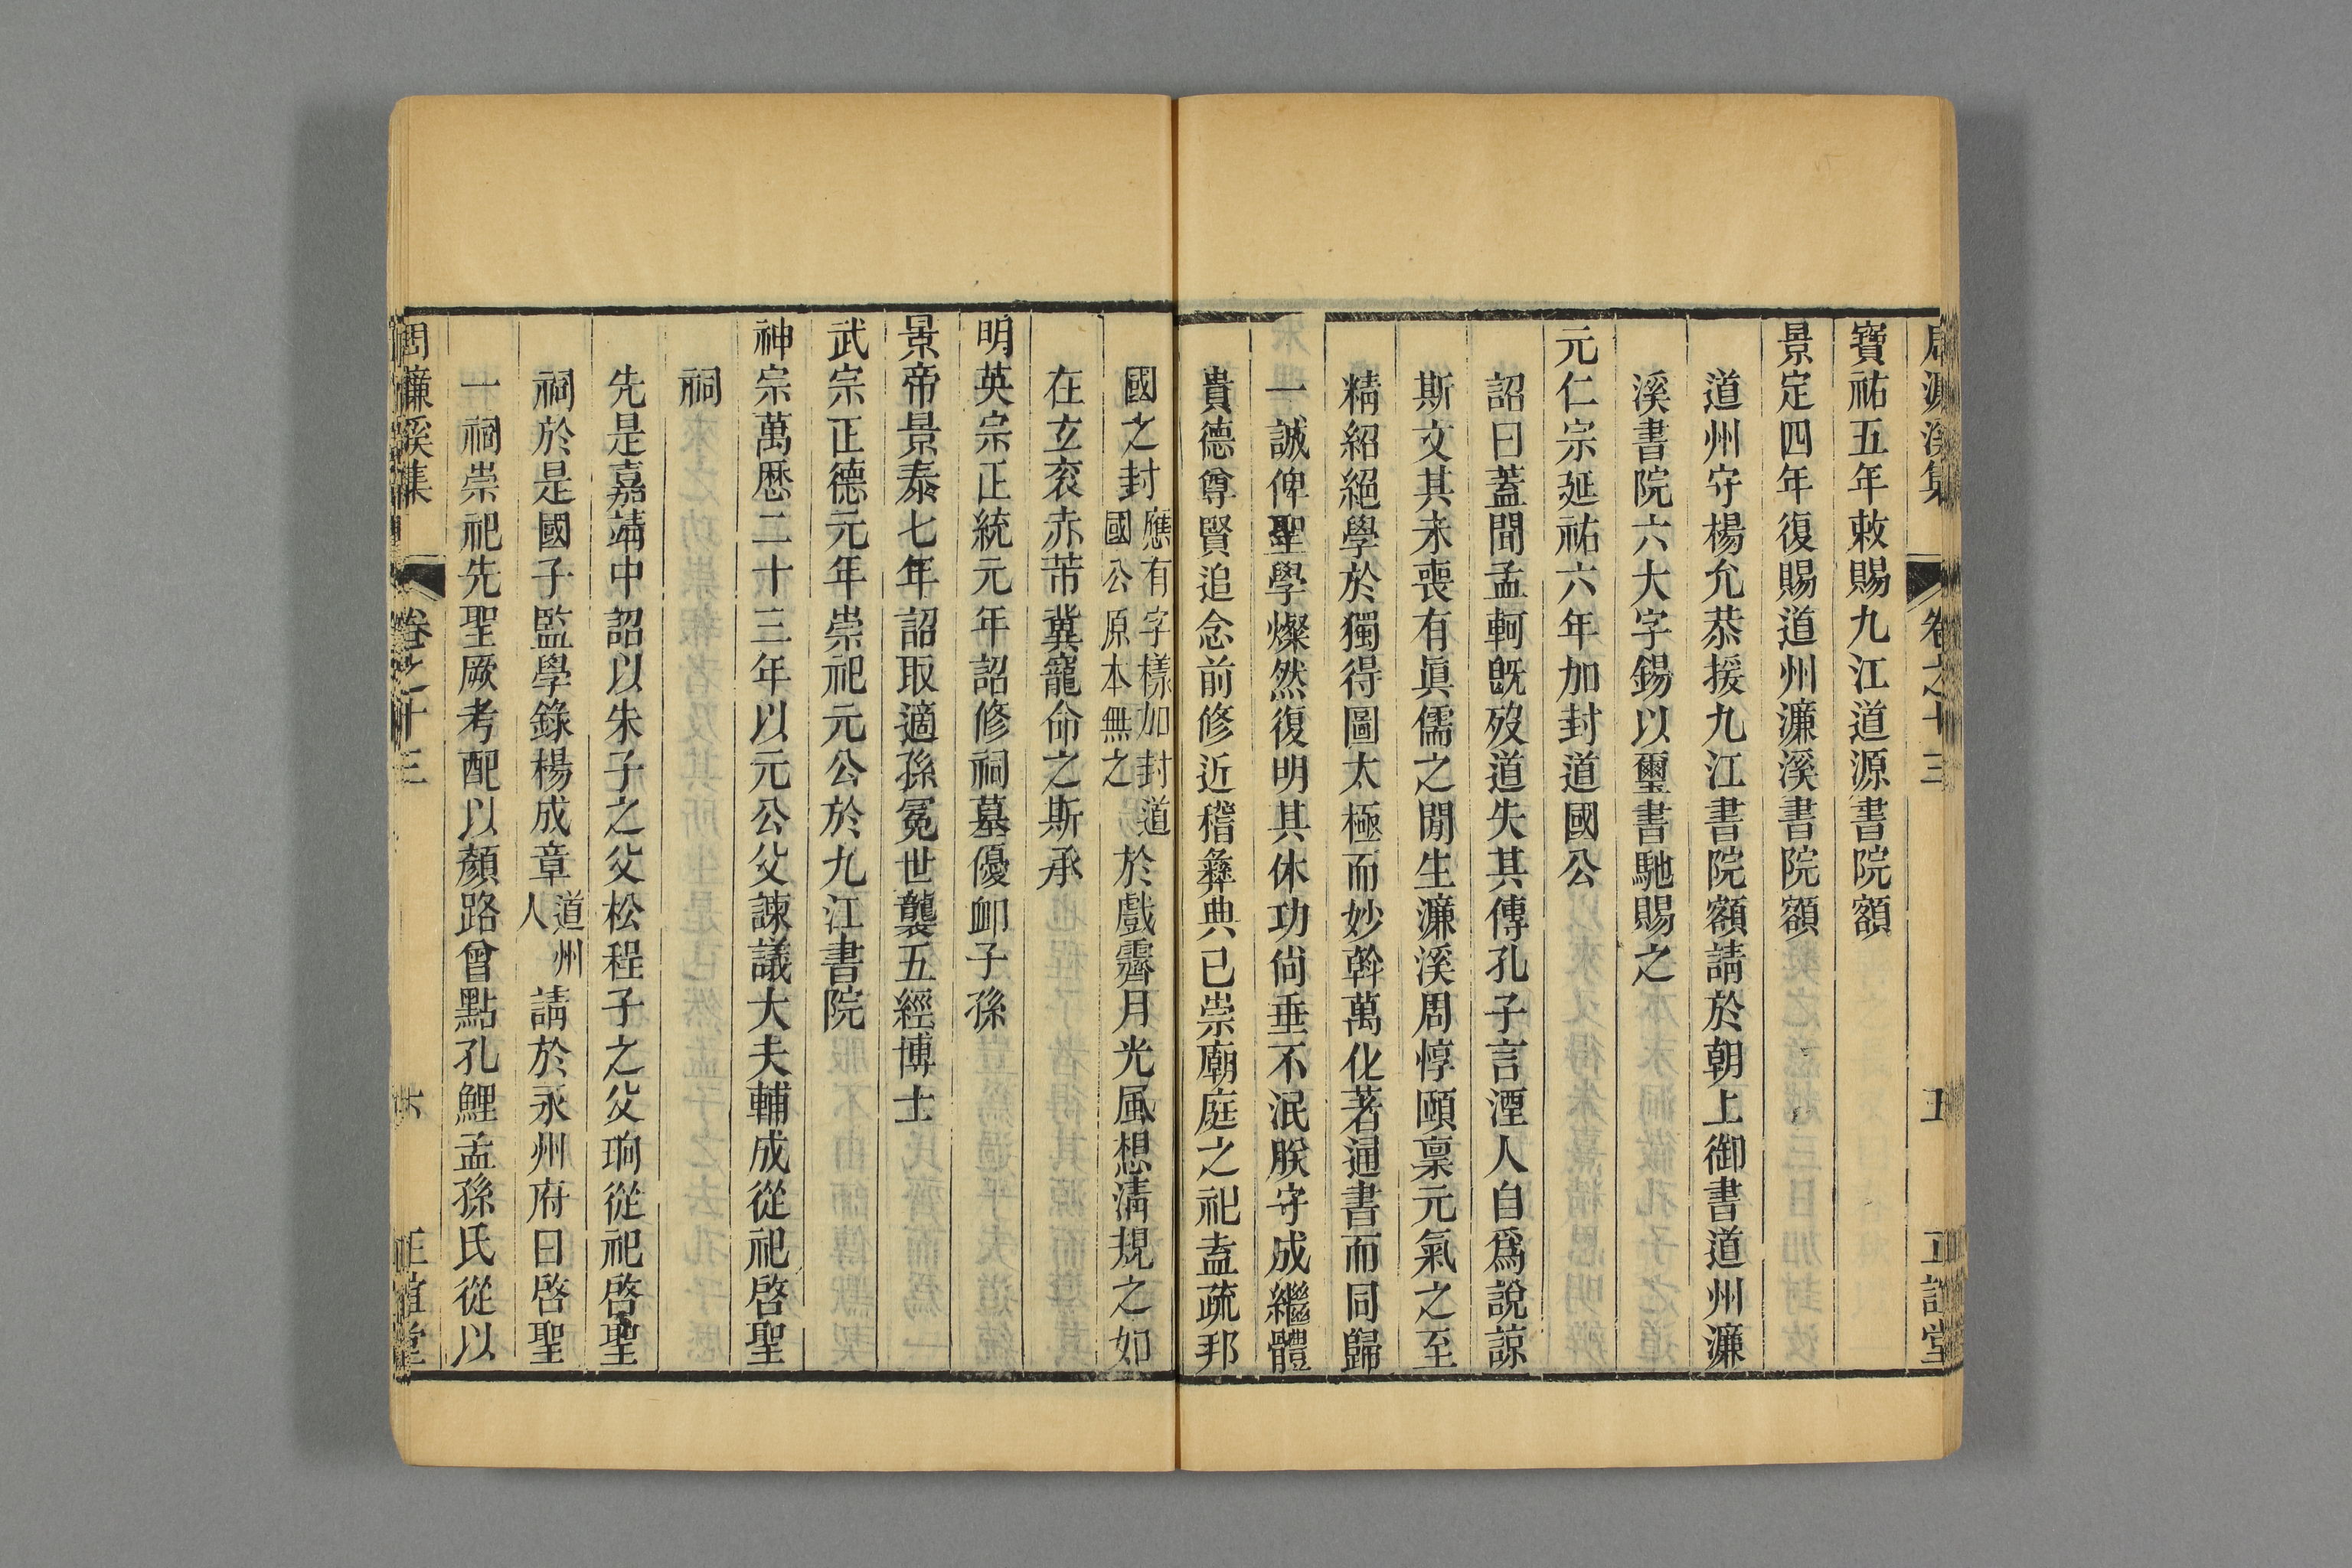 周濂溪集 卷之十三 五 正誼堂
寶祐五年敕賜九江道源書院額
景定四年復賜道州濂溪書院額
道州守楊允恭援九江書院額請於朝上御書道州濂
溪書院六大字錫以璽書馳賜之
元仁宗延祐六年加封道國公
詔曰蓋聞孟軻旣歿道失其傳孔子言湮人自爲說諒
斯文其未喪有眞儒之閒生濂溪周惇頤稟元氣之至
精紹絕學於獨得圖太極而妙斡萬化著通書而同歸
一誠俾聖學燦然復明其休功尙垂不泯朕守成繼體
貴德尊賢追念前修近稽彝典已崇廟庭之祀盍疏邦
國之封應有字樣加封道國公原本無之於戲霽月光風想淸規之如
在玄衮赤芾冀寵命之斯承
明英宗正統元年詔修祠墓優卹子孫
景帝景泰七年詔取適孫冕世襲五經博士
武宗正德元年崇祀元公於九江書院
神宗萬歷二十三年以元公父諫議大夫輔成從祀啓聖
祠
先是嘉靖中詔以朱子之父松程子之父珦從祀啓聖
祠於是國子監學錄楊成章道州人請於永州府曰啓聖
一祠崇祀先聖厥考配以顏路曾點孔鯉孟孫氏從以
周濂溪集 卷之十三 六 正誼堂